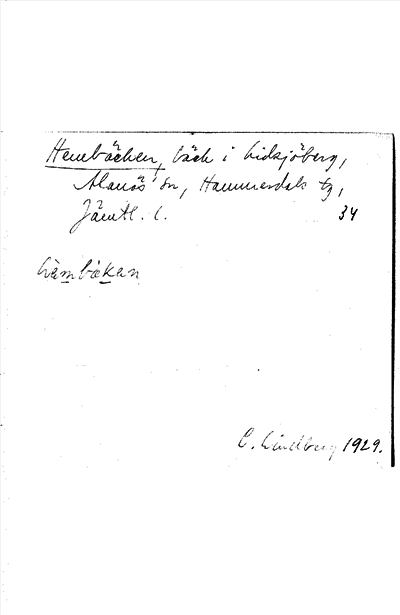 Hembäcken, bäck i Lidsjöberg,
Alanäs sn, Hammerdals tg,
Jämtl. l. 34
hàmbäkan
C. Lindberg 1929.